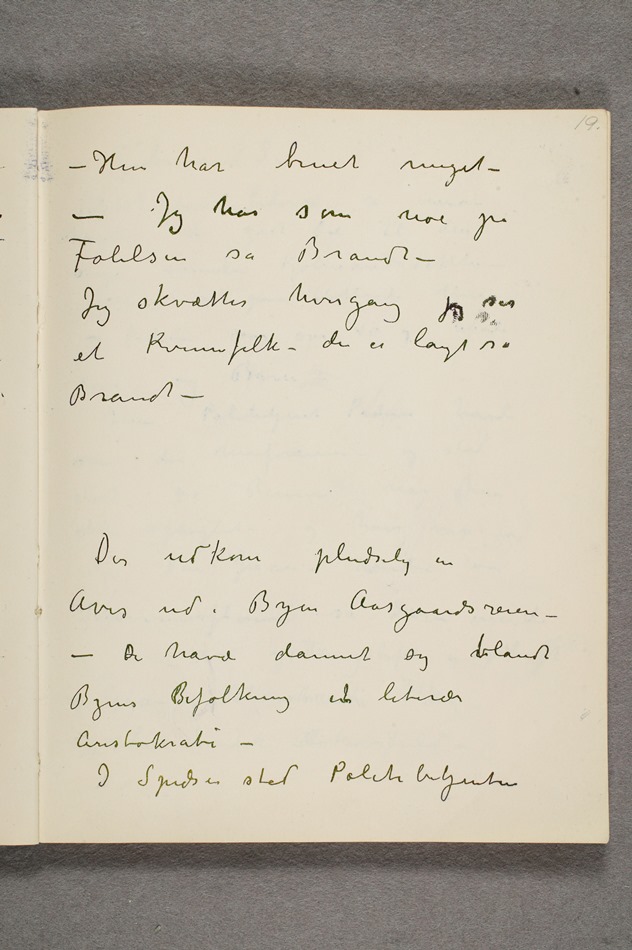 19.
– Hun har brugt meget –
– Jeg har som noe på
Følelsen sa Brandt –
Jeg skvætter hvergang jeg ser
et Kvinnfolk – de er langt sa
Brandt –
Der udkom pludselig en
Avis ud i Byen Aasgaardsreien –
– De havde dannet sig iblandt
Byens Befolkning et literær
Aristokrati –
I Spidsen stod Politibetjenten